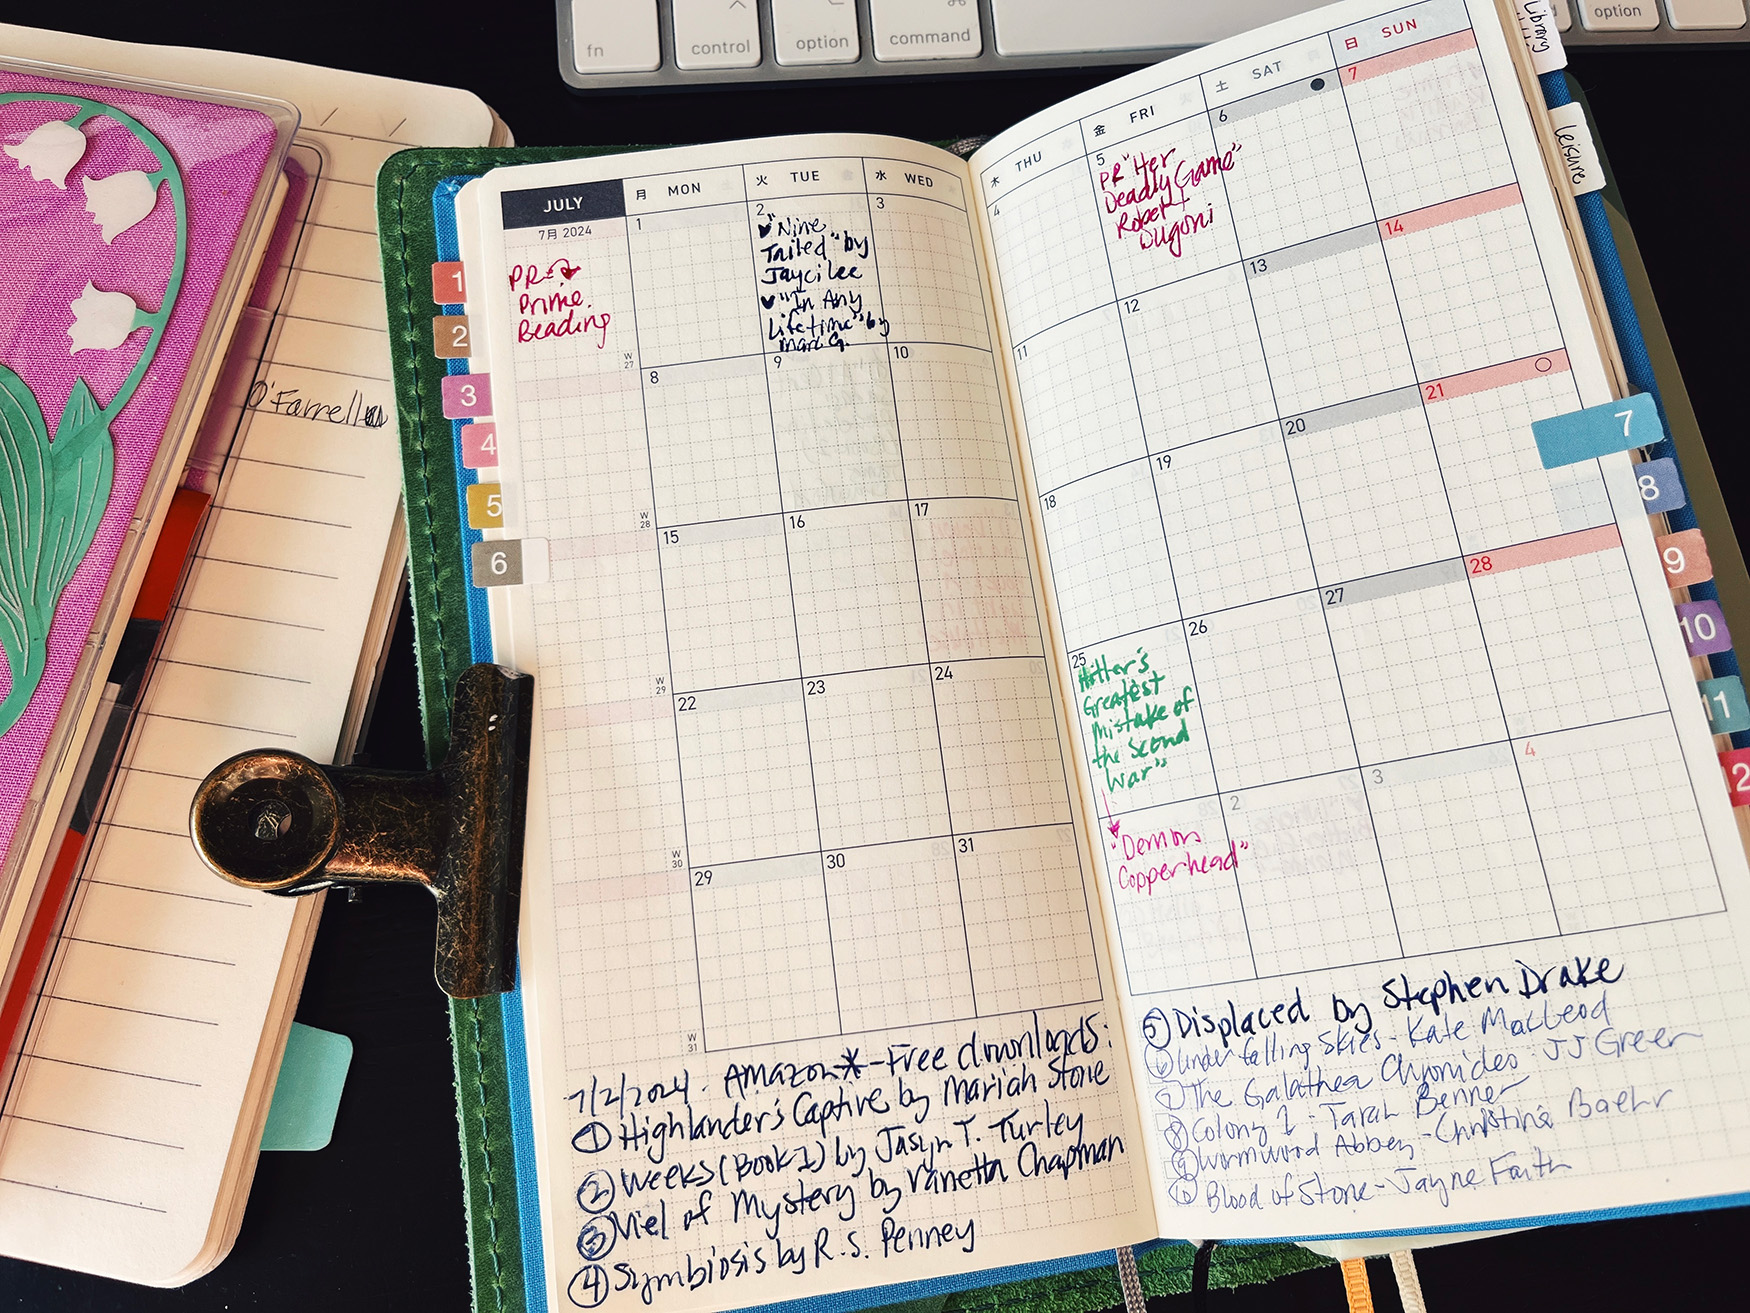 fn
control
option
command
option
Library
leisure
O'Farrell
JULY
7月 2024
月 MON
火 TUE
水 WED
木 THU
金 FRI
土 SAT
日 SUN
PR =
Prime
Reading
1
2
"Nine
Tailed" by
Jayci Lee
"In Any
Lifetime" by
Marc G.
3
4
5
PR "Her
Deadly Game"
Robert
Dugoni
6
7
W
27
8
9
10
11
12
13
14
W
28
15
16
17
18
19
20
21
W
29
22
23
24
25
Hitler's
Greatest
Mistake of
the Second
War"
26
27
28
W
30
29
30
31
"Demon
Copperhead"
2
3
4
W
31
7/2/2024. Amazon*-Free downloads:
① Highlander's Captive by Mariah Stone
② Weeks (Book 1) by Jasyn T. Turley
③ Viel of Mystery by Vanetta Chapman
④ Symbiosis by R. S. Penney
⑤ Displaced by Stephen Drake
⑥ Under falling Skies - Kate MacLeod
⑦ The Galathea Chronicles - JJ Green
⑧ Colony 1 - Tarah Benner
⑨ Wormwood Abbey - Christina Baehr
⑩ Blood of Stone - Jayne Faith
1
2
3
4
5
6
7
8
9
10
11
12